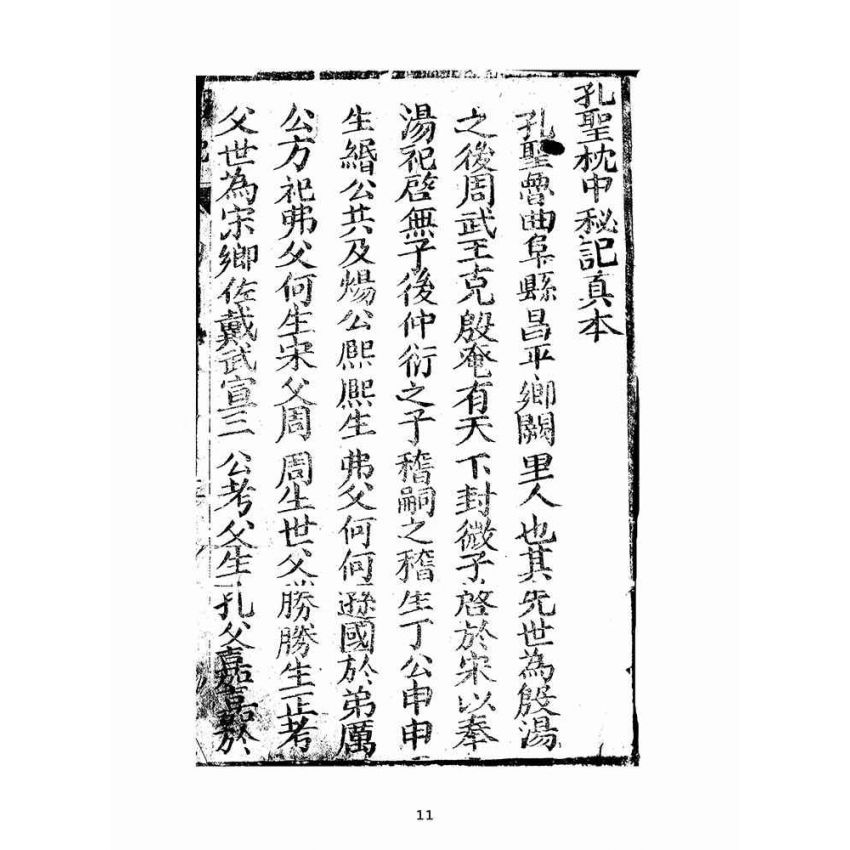 孔聖枕中秘記真本
孔聖魯曲阜縣昌平鄉闕里人也其先世為殷湯
之後周武王克殷奄有天下封微子啓於宋以奉
湯祀啓無子後仲衍之子稽嗣之稽生丁公申申
生緡公共及煬公熙熙生弗父何何遜國於弟厲
公方祀弗父何生宋父周周生世父勝勝生正考
父世為宋鄉佐戴武宣三公考父生孔父嘉嘉於
11